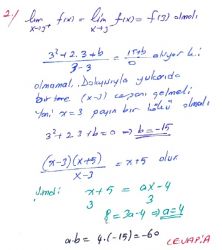 2-) lim x→3⁺ f(x) = lim x→3⁻ f(x) = f(3) olmalı
(3² + 2.3 + b) / (3-3) = (15+b) / 0 oluyor ki
olmamalı. Dolayısıyla yukarıda
bir tane (x-3) çarpanı gelmeli
Yani x=3 payın bir kökü olmalı
3² + 2.3 + b = 0 ⇒ b = -15
(x-3)(x+5) / (x-3) = x+5 olur
Şimdi x+5 = ax-4
3 3
8 = 3a-4 ⇒ a=4
a.b = 4.(-15) = -60
CEVAP:A